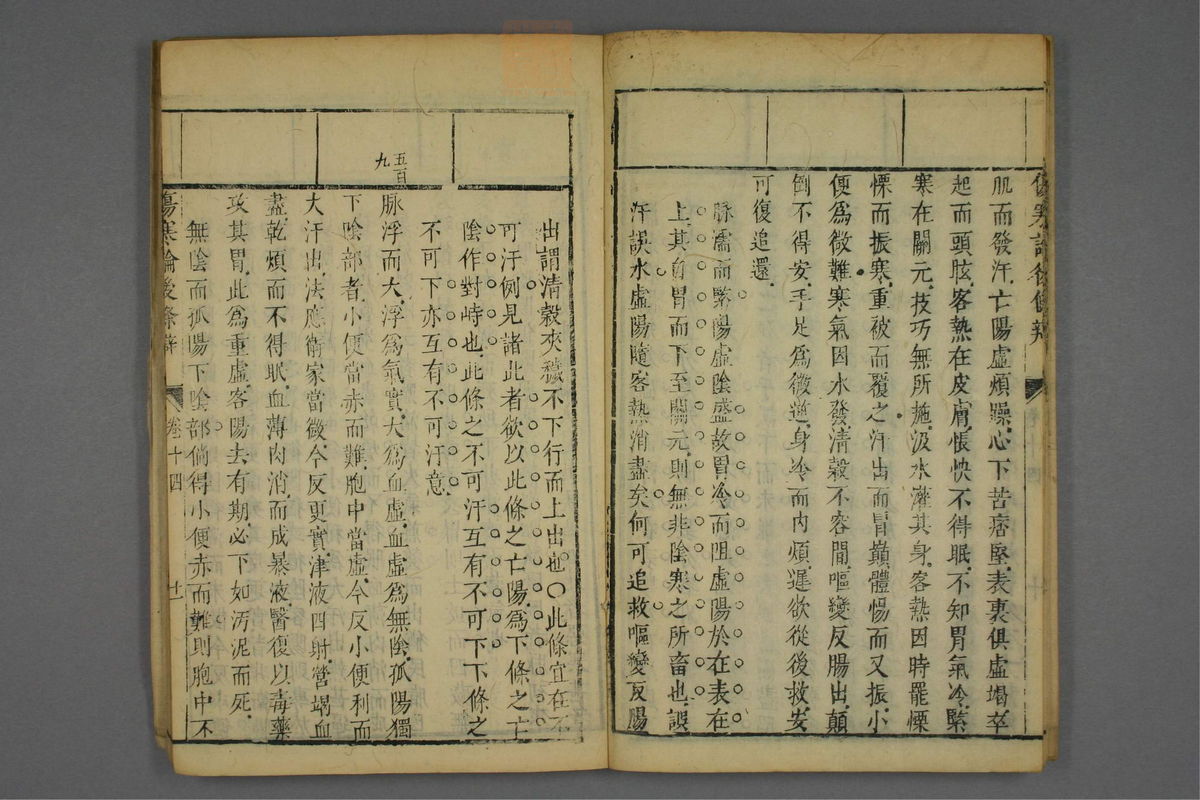 傷寒論後條辨
肌而發汗亡陽虛煩躁心下苦痞堅表裏俱虛竭卒
起而頭眩客熱在皮膚悵怏不得眠不知胃氣冷緊
寒在關元技巧無所施汲水灌其身客熱因時罷慄
慄而振寒重被而覆之汗出而冒巔體惕而又振小
便爲微難寒氣因水發清穀不容間嘔變反腸出顛
倒不得安手足爲微逆身冷而內煩遲欲從後救安
可復追還
脉濡而緊陽虛陰盛故胃冷而阻虛陽於在表在
上其自胃而下至關元則無非陰寒之所畜也誤
汗誤水虛陽隨客熱消盡矣何可追救嘔變反腸
出謂清穀夾穢不下行而上出也○此條宜在不
可汗例見諸此者欲以此條之亡陽爲下條之亡
陰作對峙也此條之不可汗互有不可下下條之
不可下亦互有不可汗意
五百九
脉浮而大浮爲氣實大爲血虛血虛爲無陰孤陽獨
下陰部者小便當赤而難胞中當虛今反小便利而
大汗出法應衛家當微今反更實津液四射營竭血
盡乾煩而不得眠血薄肉消而成暴液醫復以毒藥
攻其胃此爲重虛客陽去有期必下如汚泥而死
無陰而孤陽下陰部倘得小便赤而難則胞中不
傷寒論後條辨
卷十四
十一